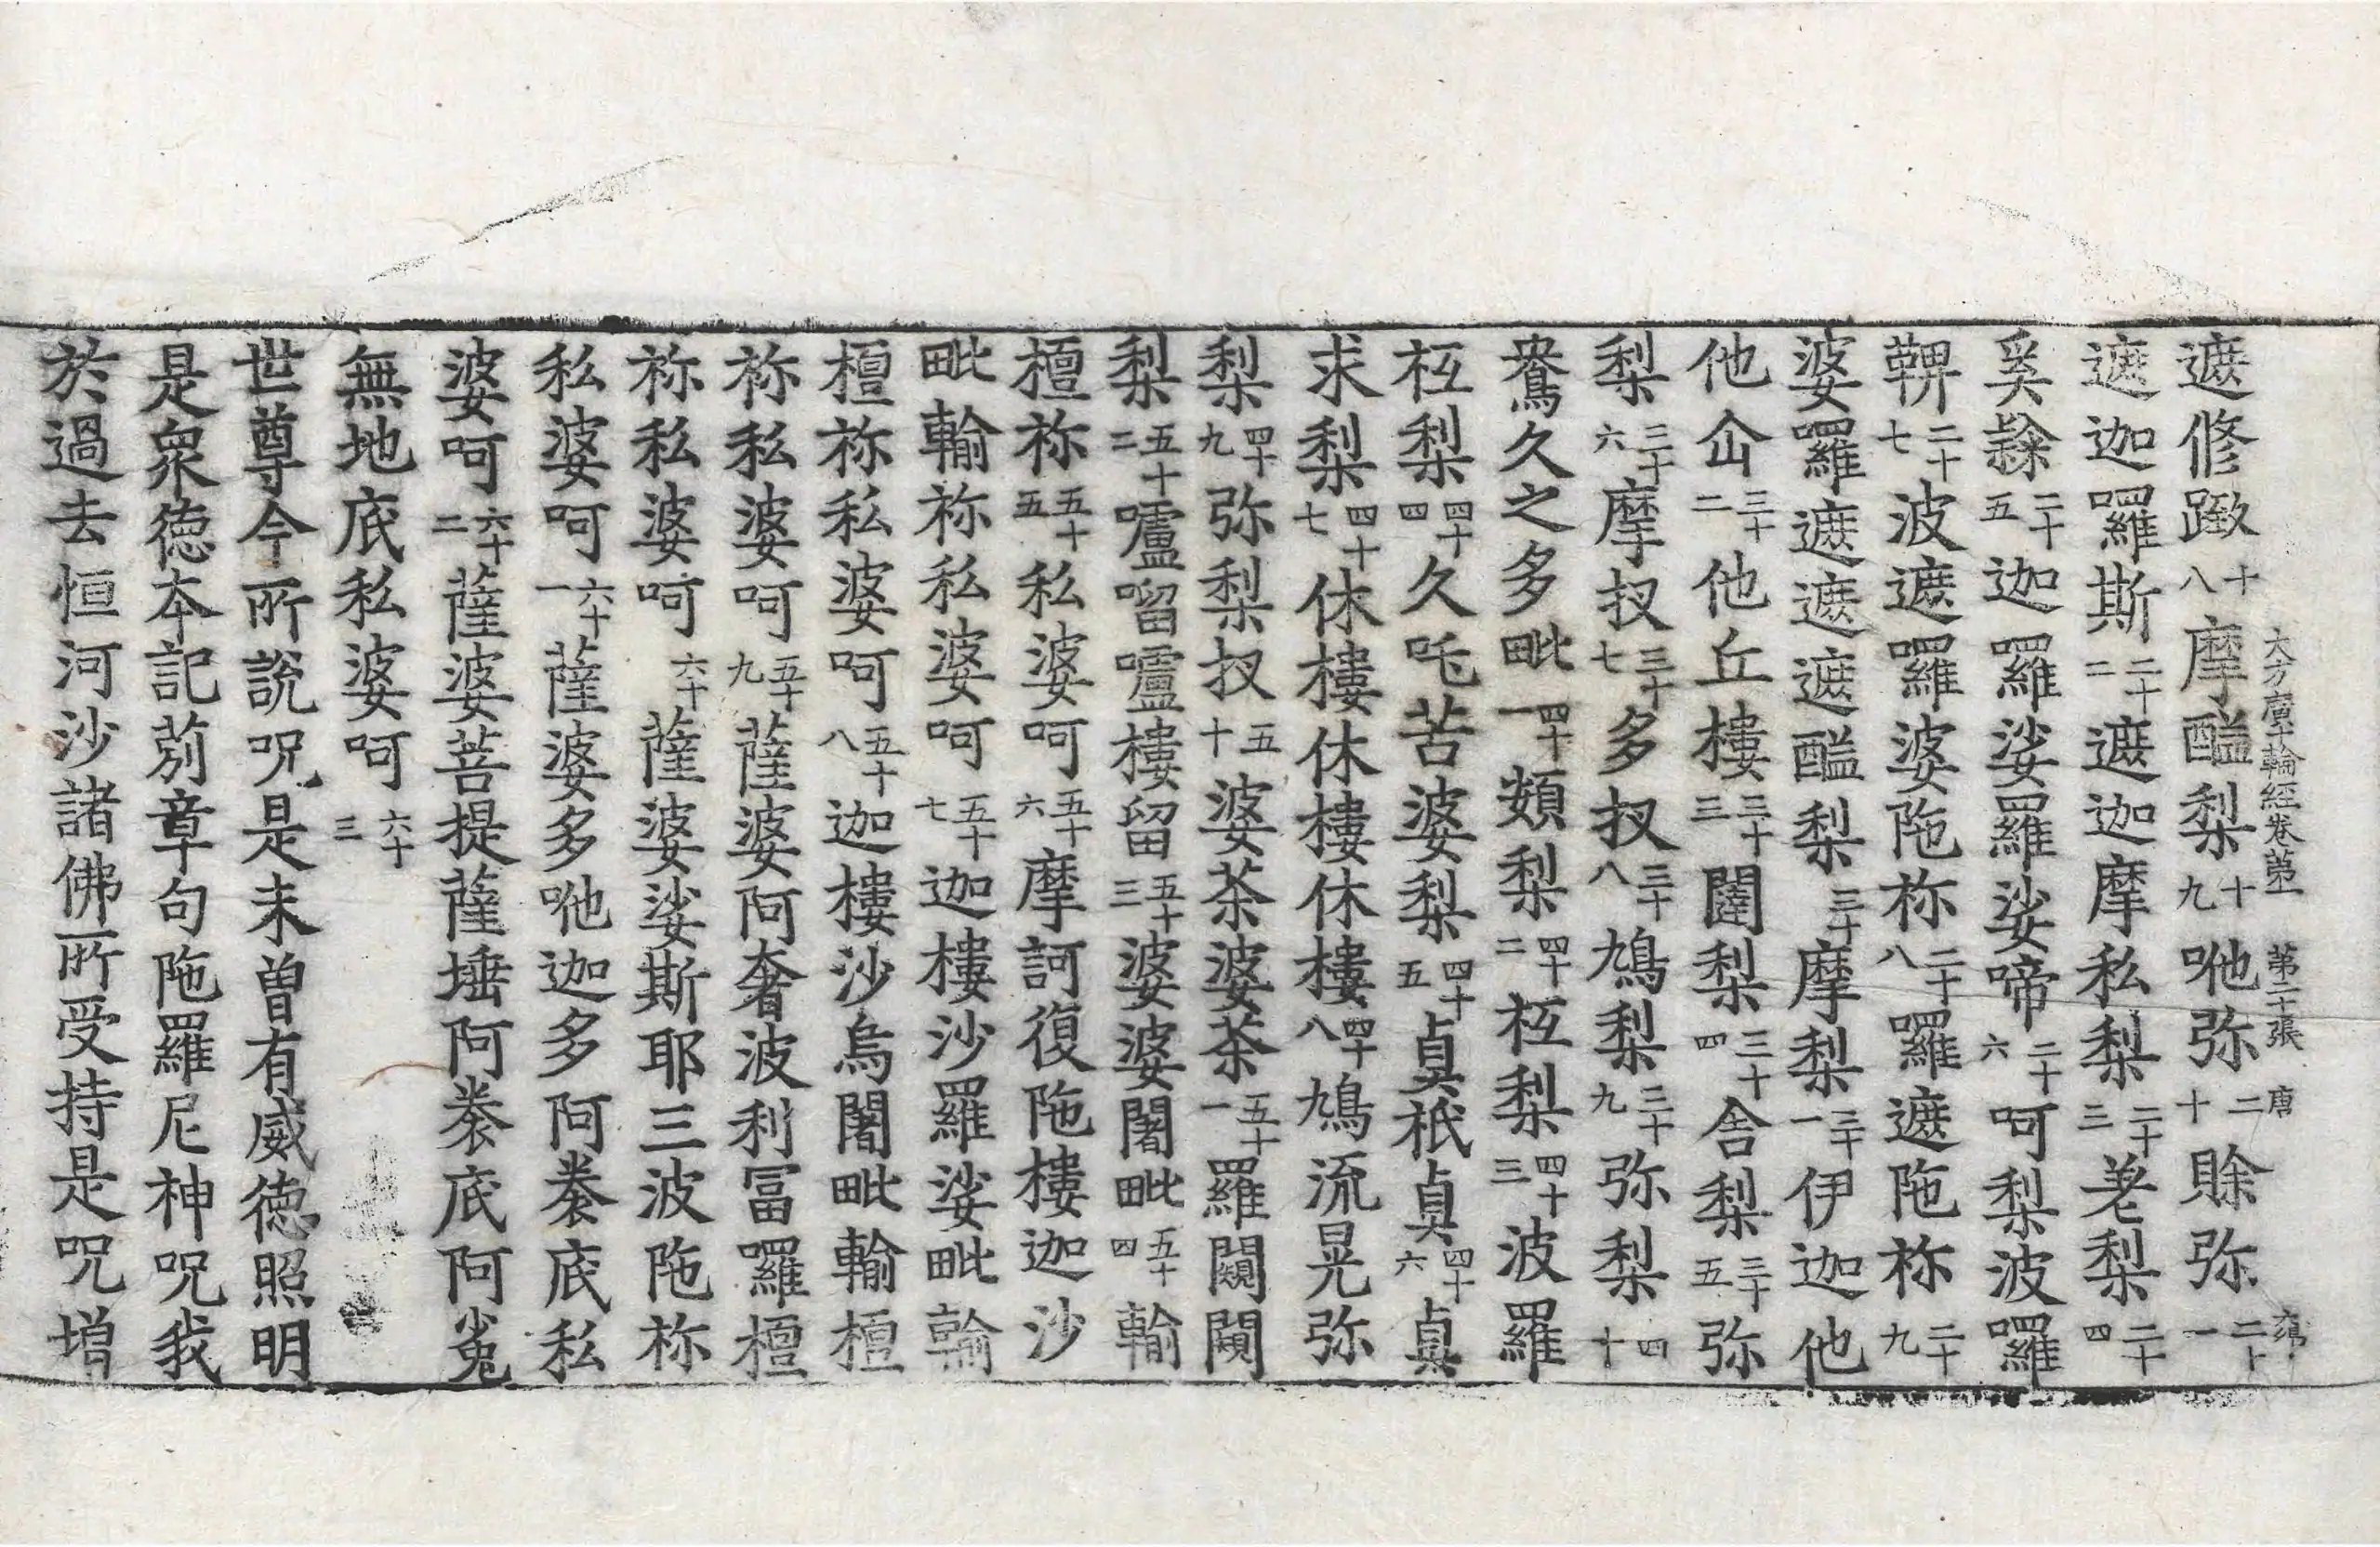 大方廣十輪經卷第一 第二十張 唐
遮修𨁈十八摩醯梨十九哋弥二十賖弥二十一
遮迦囉斯二十二遮迦摩私梨二十三差梨二十四
奚𨽻二十五迦囉娑羅娑啼二十六呵梨波囉
鞞二十七波遮囉婆陁祢二十八囉遮陁祢二十九
婆囉遮遮遮醯梨三十摩梨三十一伊迦他
他仚三十二他丘樓三十三闥梨三十四舍梨三十五弥
梨三十六摩扠三十七多扠三十八鳩梨三十九弥梨四十
鴦久之多毗四十一頞梨四十二枑梨四十三波羅
枑梨四十四久吒苦婆梨四十五貞祇貞四十六貞
求梨四十七休樓休樓休樓四十八鳩流晃弥
梨四十九弥梨扠五十婆茶婆茶五十一羅闚闚
梨五十二嚧㗨嚧樓留五十三婆婆闍毗五十四輸
檀祢五十五私婆呵五十六摩訶復陁樓迦沙
毗輸祢私婆呵五十七迦樓沙羅娑毗輸
檀祢私婆呵五十八迦樓沙烏闍毗輸檀
祢私婆呵五十九薩婆阿奢波利冨囉檀
祢私婆呵六十薩婆娑斯耶三波陁祢
私婆呵六十一薩婆多哋迦多阿㭐底私
婆呵六十二薩婆菩提薩埵阿㭐底阿㝹
無地底私婆呵六十三
世尊今所說呪是未曾有威德照明
是衆德本記莂章句陁羅尼神呪我
於過去恒河沙諸佛所受持是呪增